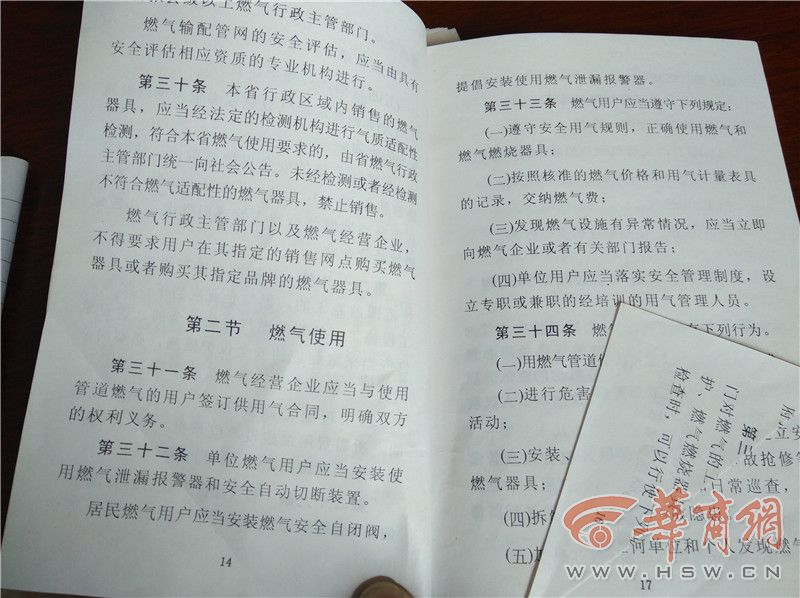 县级以上燃气行政主管部门。
燃气输配管网的安全评估，应当由具有
安全评估相应资质的专业机构进行。
第三十条 本省行政区域内销售的燃气
器具，应当经法定的检测机构进行气质适配性
检测，符合本省燃气使用要求的，由省燃气行政
主管部门统一向社会公告。未经检测或者经检测
不符合燃气适配性的燃气器具，禁止销售。
燃气行政主管部门以及燃气经营企业，
不得要求用户在其指定的销售网点购买燃气
器具或者购买其指定品牌的燃气器具。
第二节 燃气使用
第三十一条 燃气经营企业应当与使用
管道燃气的用户签订供用气合同，明确双方
的权利义务。
第三十二条 单位燃气用户应当安装使
用燃气泄漏报警器和安全自动切断装置。
居民燃气用户应当安装燃气安全自闭阀，
14
提倡安装使用燃气泄漏报警器。
第三十三条 燃气用户应当遵守下列规定：
(一)遵守安全用气规则，正确使用燃气和
燃气燃烧器具；
(二)按照核准的燃气价格和用气计量表具
的记录，交纳燃气费；
(三)发现燃气设施有异常情况，应当立即
向燃气企业或者有关部门报告；
(四)单位用户应当落实安全管理制度，设
立专职或兼职的经培训的用气管理人员。
第三十四条 燃 有下列行为。
(一)用燃气管道
(二)进行危害
活动；
(三)安装、
燃气器具；
(四)拆
(五)
立安
故抢修
日常巡查，
何单位和个人发现燃气
17
第三
门对燃气的
护、燃气燃烧器
检查时，可以行使下
華商網
WWW.HSW.CN